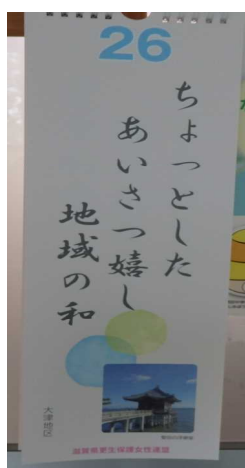 26
ちょっとした
あいさつ嬉し
地域の和
大津地区
滋賀県更生保護女性連盟